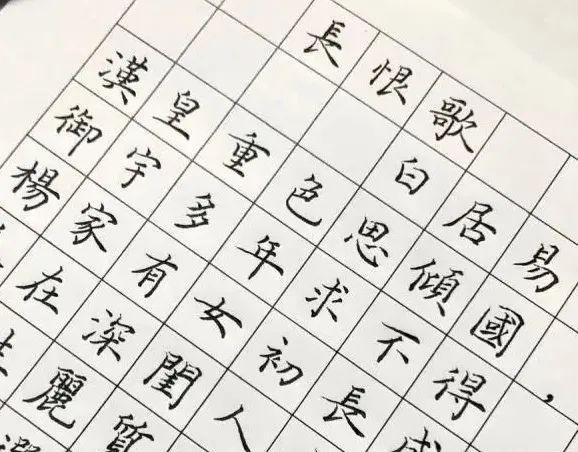 長恨歌
白居易
漢皇重色思傾國，
御宇多年求不得
楊家有女初長成
在深閨人
麗質